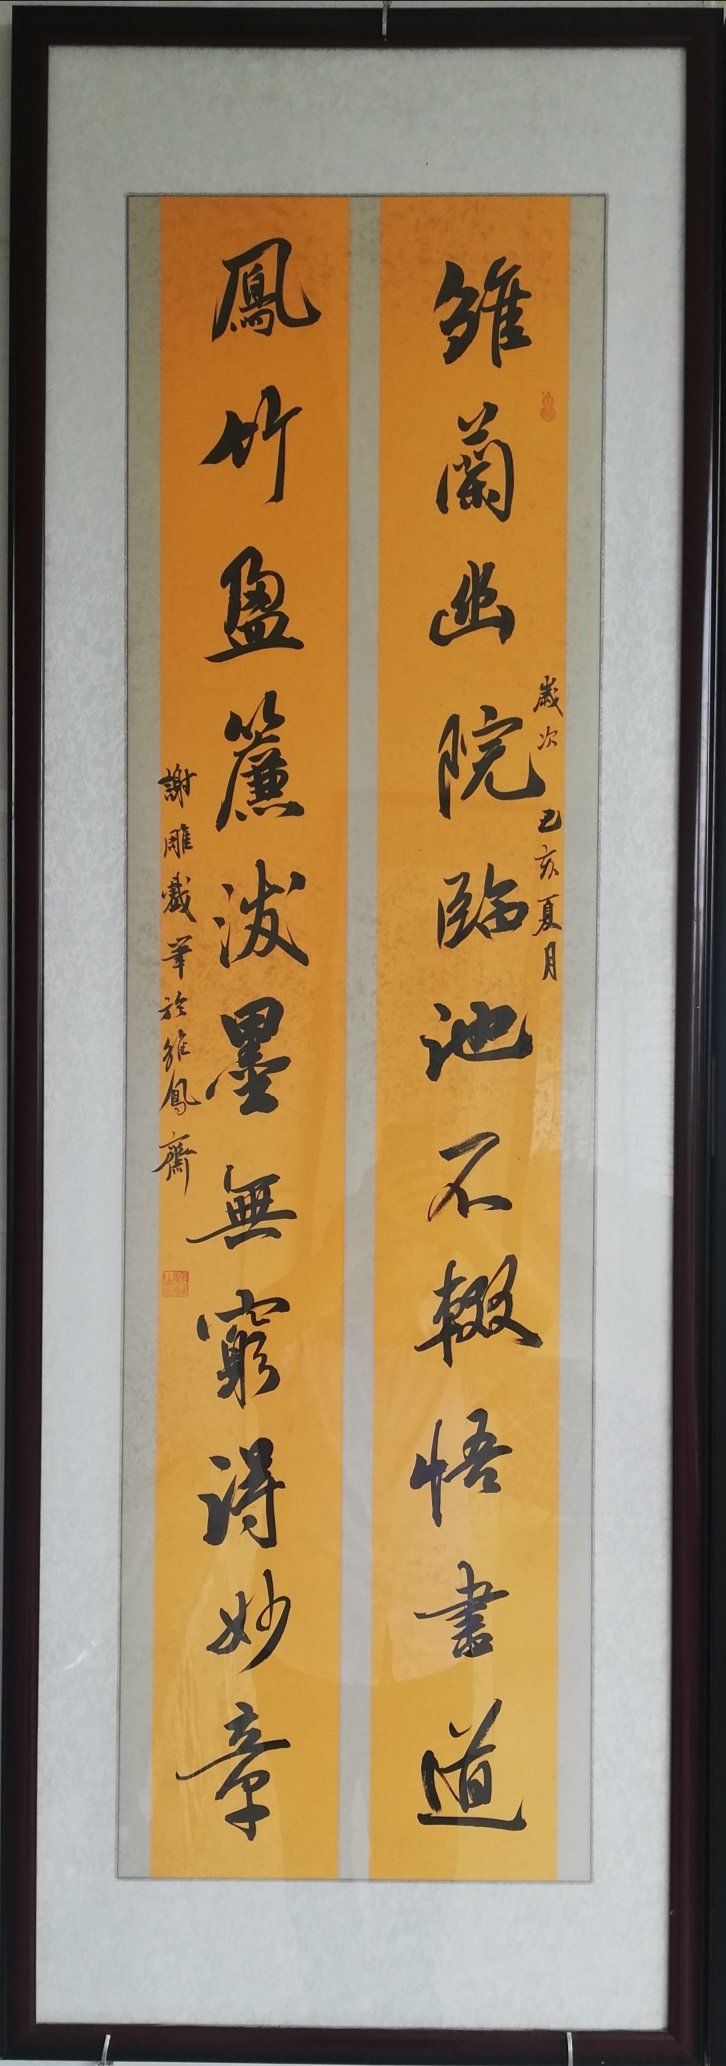 雏蘭幽院臨池不輟悟書道
歲次己亥夏月
鳳竹盈簾潑墨無窮得妙章
謝雕戲筆於雏鳳齋